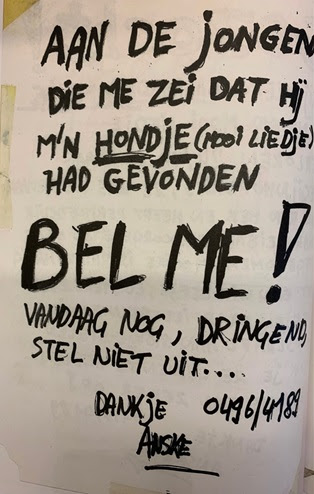 AAN DE JONGEN
DIE ME ZEI DAT HIJ
M'N HONDJE (MOOI LIEDJE)
HAD GEVONDEN
BEL ME!
VANDAAG NOG, DRINGEND,
STEL NIET UIT....
DANKJE 0496/4189
ANSKE